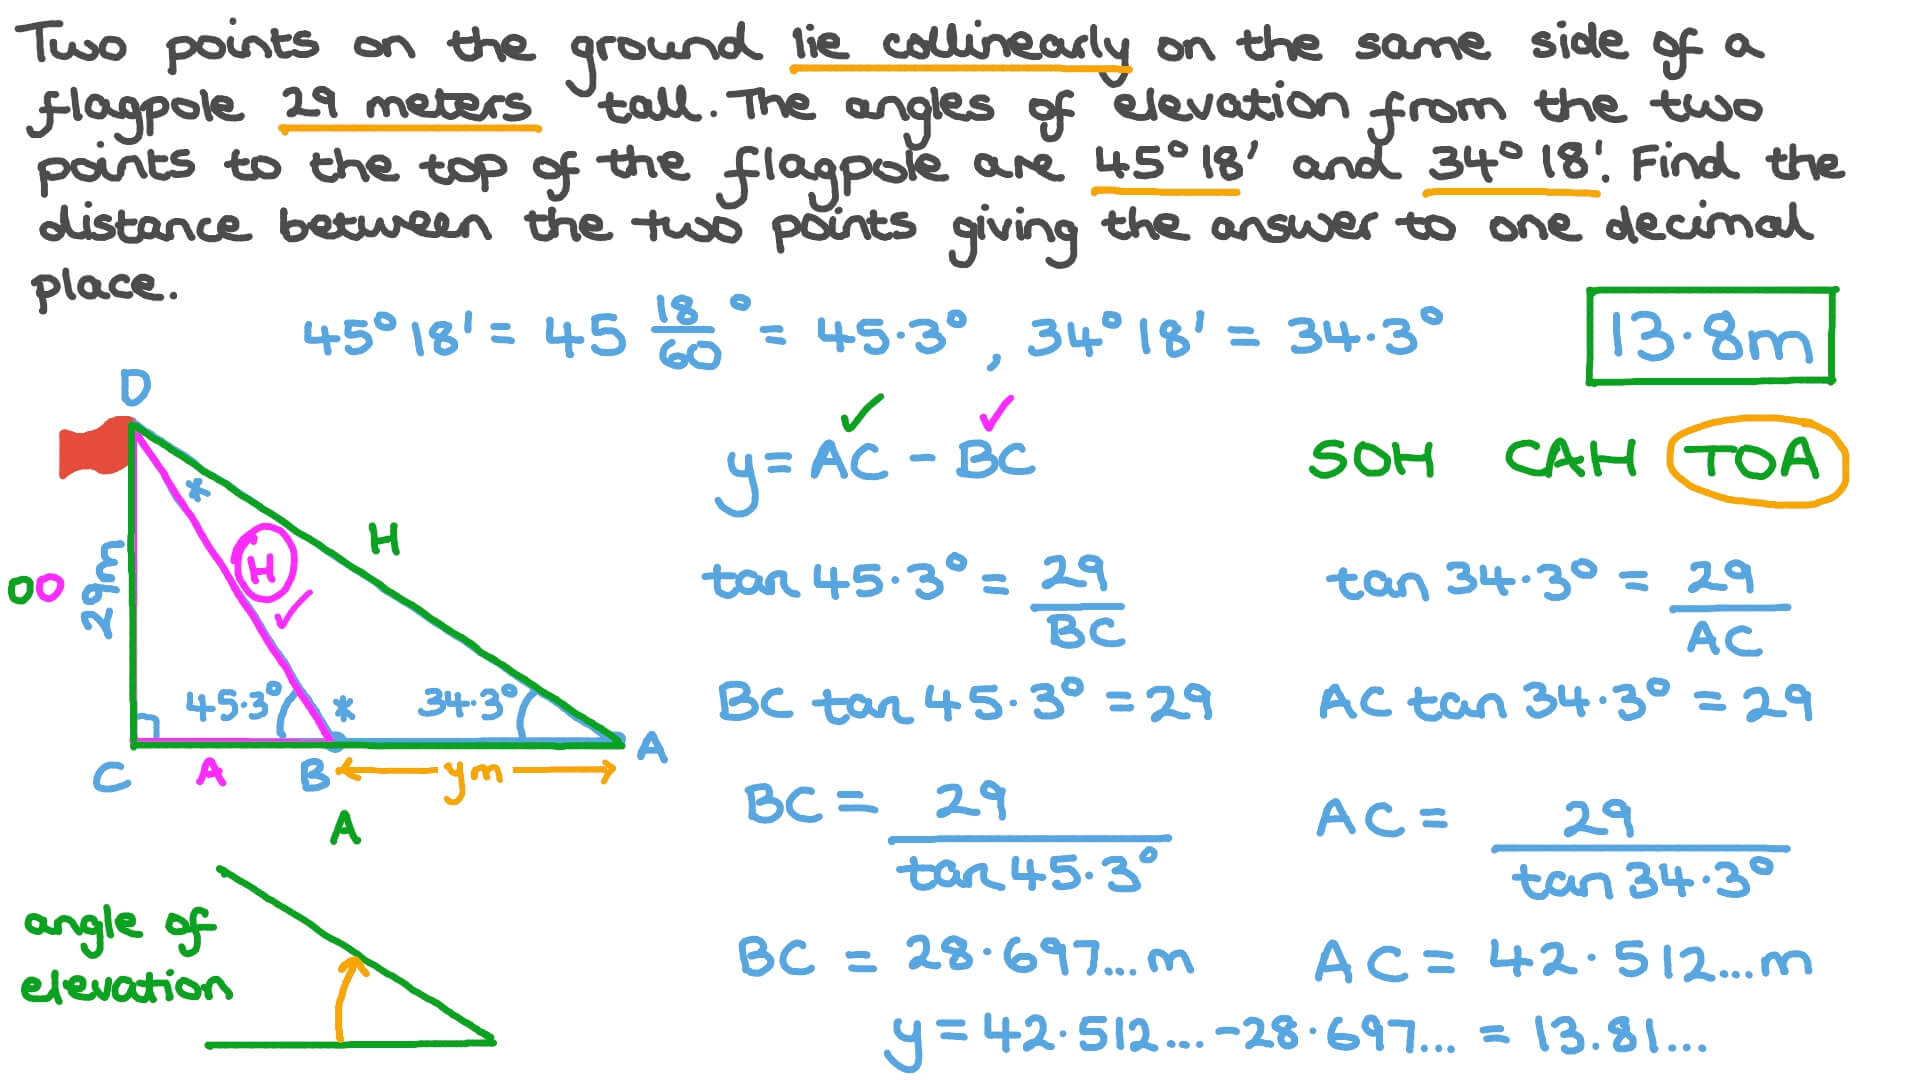 Two points on the ground lie collinearly on the same side of a
flagpole 29 meters tall. The angles of elevation from the two
points to the top of the flagpole are 45°18' and 34°18'. Find the
distance between the two points giving the answer to one decimal
place.
45°18' = 45 18/60 ° = 45.3°, 34°18' = 34.3°
13.8m
D
y = AC - BC
SOH CAH TOA
H
H
OO
29m
tan 45.3° = 29/BC
tan 34.3° = 29/AC
45.3° * 34.3°
*
BC tan 45.3° = 29
AC tan 34.3° = 29
C A B ym A
A
BC = 29/tan 45.3°
AC = 29/tan 34.3°
angle of
elevation
BC = 28.697...m
AC = 42.512...m
y = 42.512... - 28.697... = 13.81...